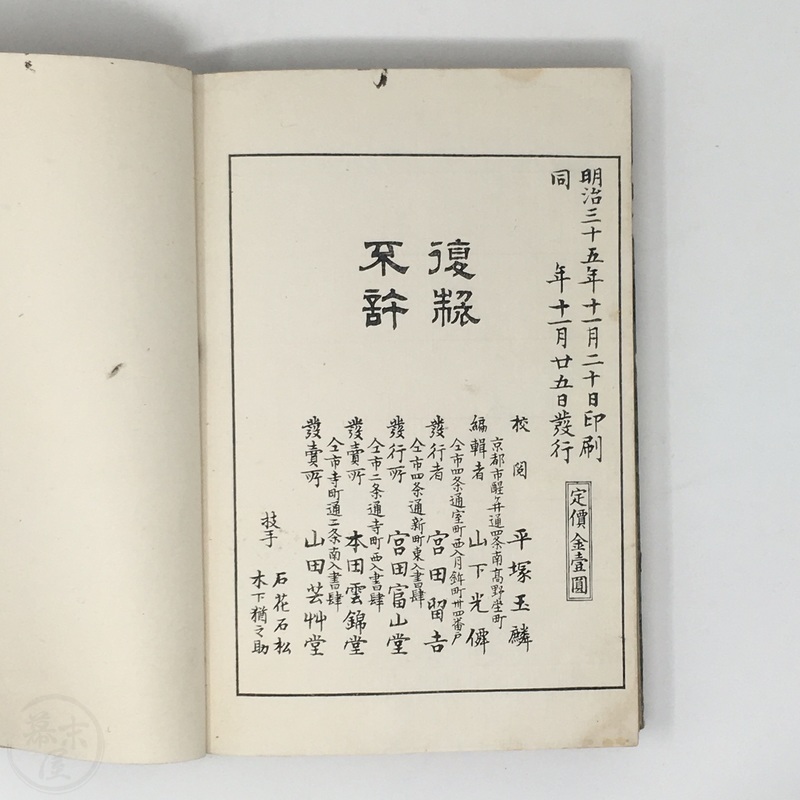 明治三十五年十一月二十日印刷
同　年十一月廿五日發行
定價金壹圓
復製
不許
校閲　平塚玉麟
京都市醒ヶ井通四条南高野堂町
編輯者　山下光僲
仝市四条通室町西入月鉾町卅四番戸
發行者　宮田留吉
仝市四条通新町東入書肆
發行所　宮田富山堂
仝市二条通寺町西入書肆
發賣所　本田雲錦堂
仝市寺町通二条南入書肆
發賣所　山田芸艸堂
技手　石花石松
木下猶之助
幕末屋